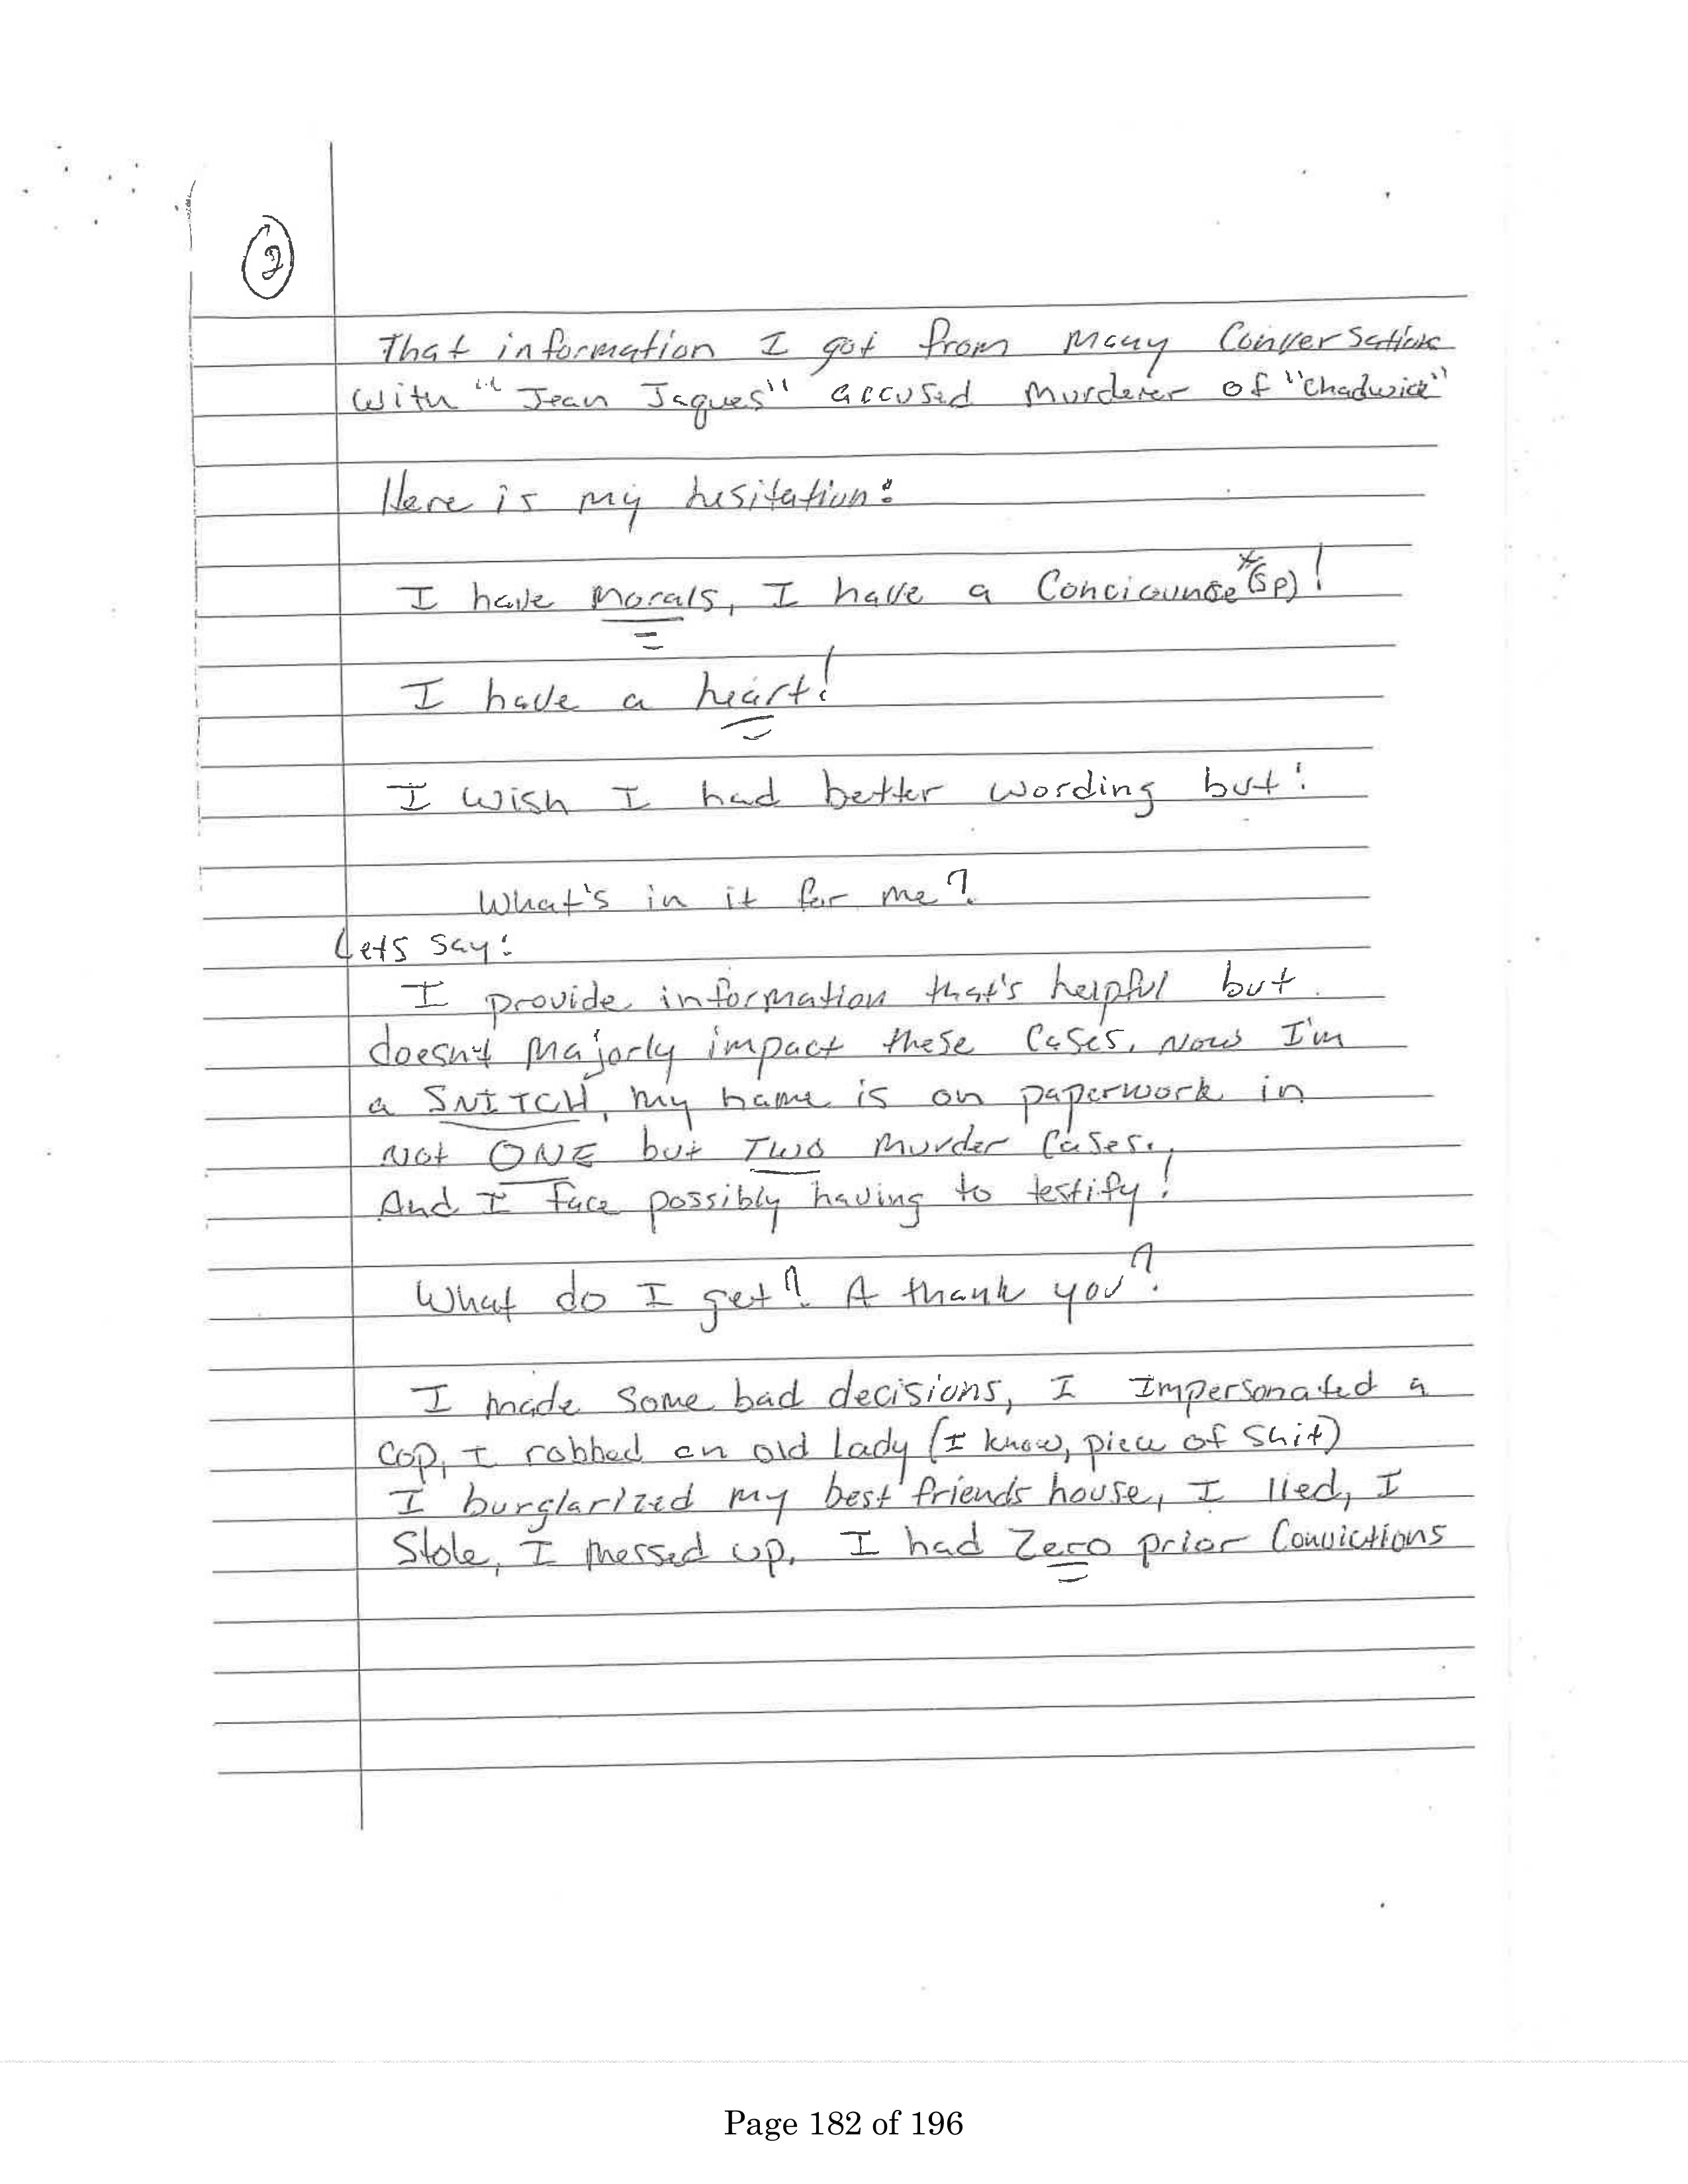 2
That information I got from many Conversations
with "Jean Jaques" accused murderer of "Chadwick"
Here is my hesitation:
I have morals, I have a Conciounce *(sp)!
I have a heart!
I wish I had better wording but:
What's in it for me?
Lets say:
I provide information that's helpful but
doesn't majorly impact these cases. Now I'm
a SNITCH, my name is on paperwork in
Not ONE but TWO murder cases.,
And I face possibly having to testify!
What do I get? A thank you?
I made some bad decisions, I Impersonated a
cop, I robbed an old lady (I know, piece of shit)
I burglarized my best friends house, I lied, I
Stole, I messed up. I had Zero prior Convictions
Page 182 of 196